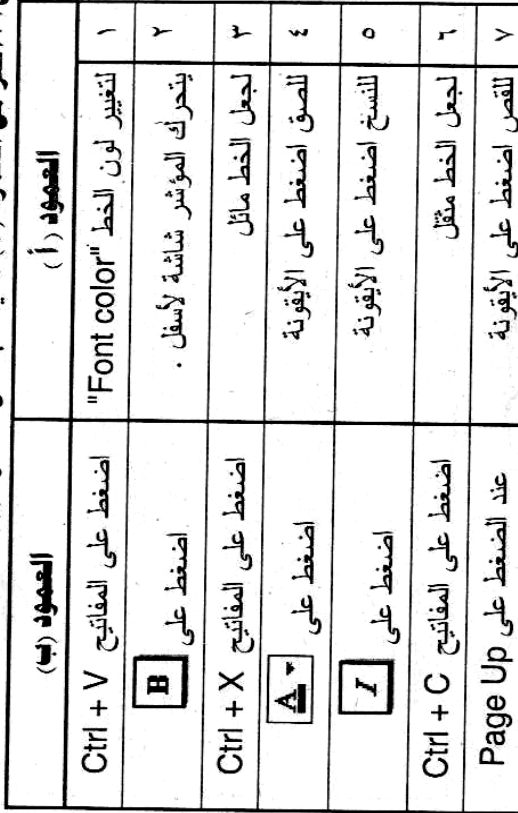 العمود (أ) العمود (ب)
١ لتغيير لون الخط "Font color" اضغط على المفاتيح Ctrl + V
٢ يتحرك المؤشر شاشة لأسفل . اضغط على B
٣ لجعل الخط مائل اضغط على المفاتيح Ctrl + X
٤ للصق اضغط على الأيقونة اضغط على A
٥ للنسخ اضغط على الأيقونة اضغط على I
٦ لجعل الخط مثقل اضغط على المفاتيح Ctrl + C
٧ للقص اضغط على الأيقونة عند الضغط على Page Up